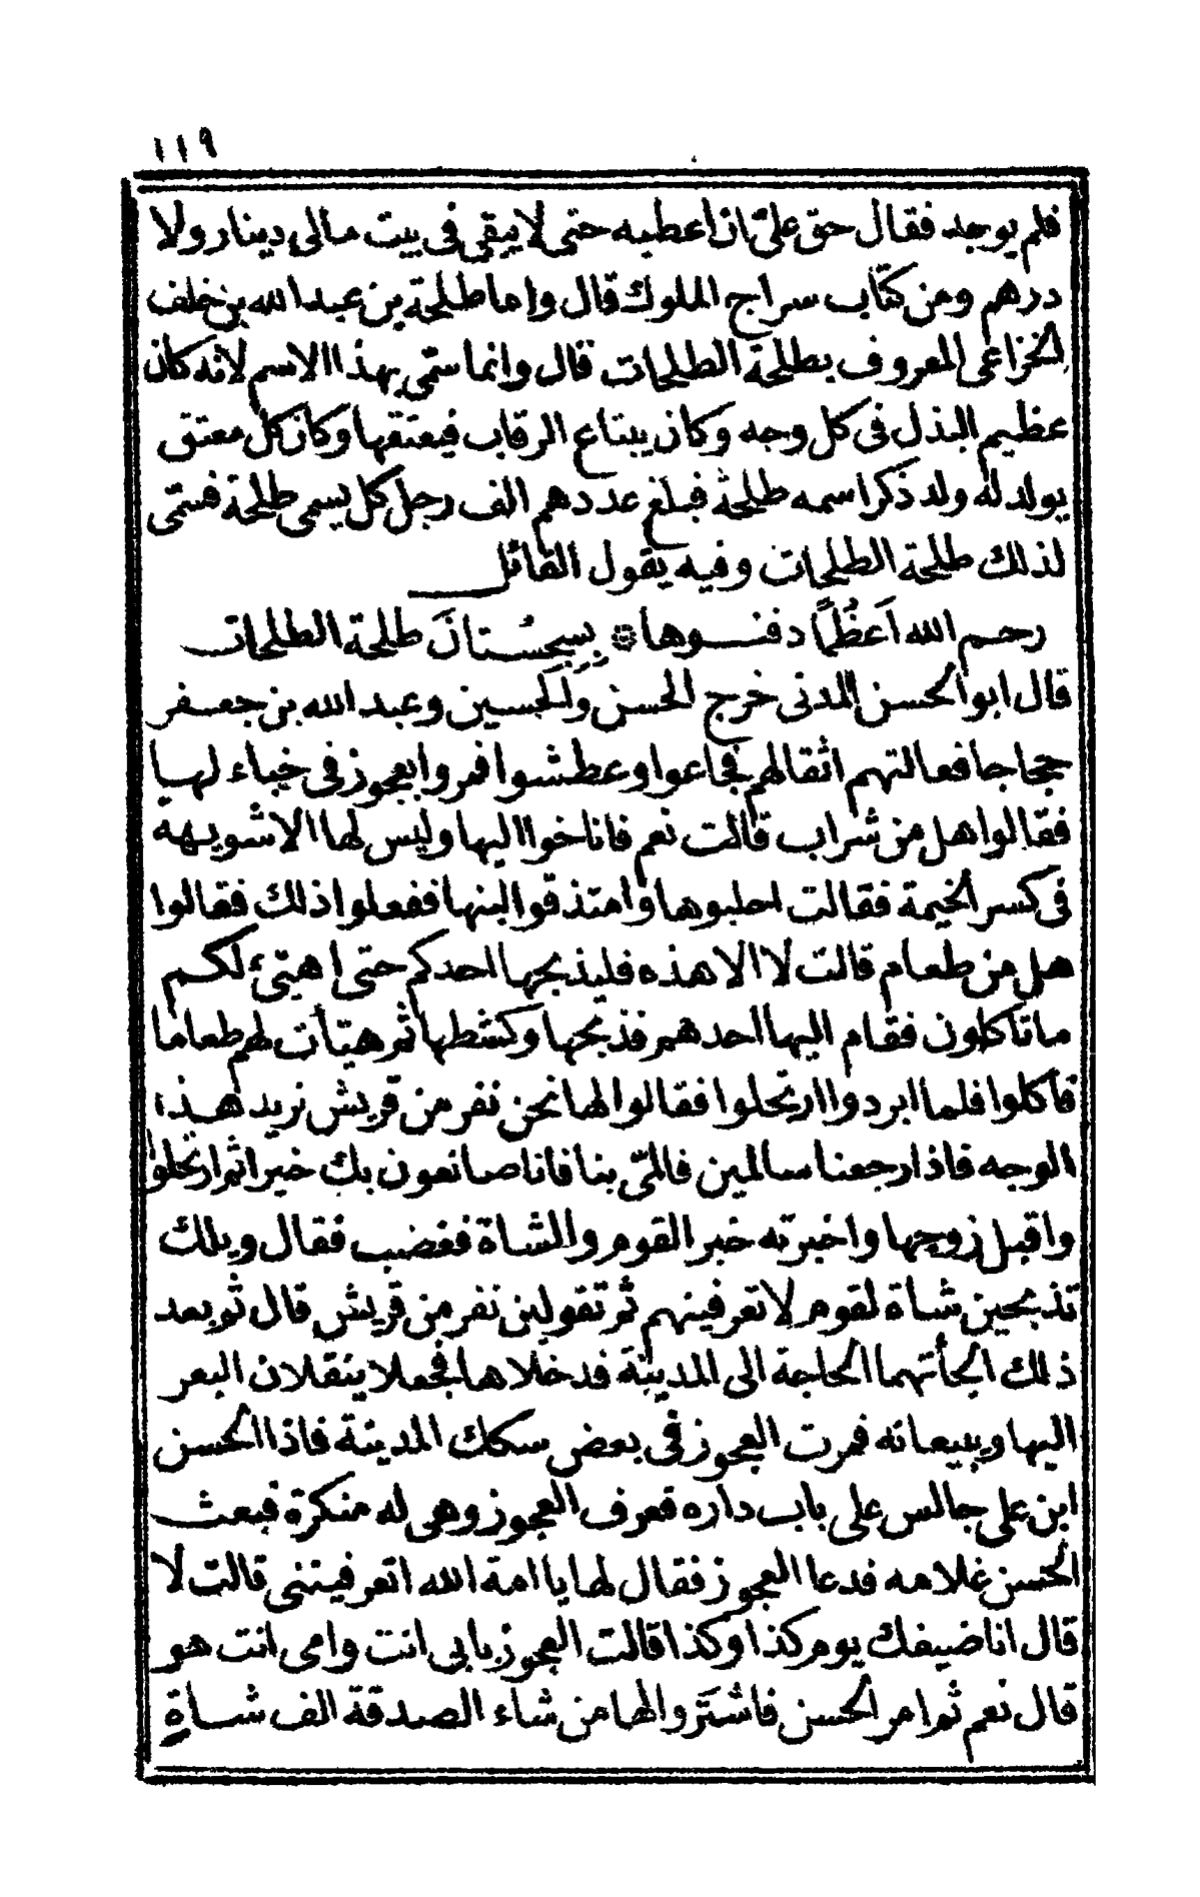 ١١٩
فلم يوجد فقال حق علىّ ان اعطيه حتى لا يبقى فى بيت مالى دينار ولا
درهم ومن كتّاب سراج الملوك قال واما طلحة بن عبد الله بن خلف
الخزاعى المعروف بطلحة الطلحات قال وانما سمّى بهذا الاسم لانه كان
عظيم البذل فى كل وجه وكان يبتاع الرقاب فيعتقها وكان كل معتق
يولد له ولد ذكر اسمه طلحة فبلغ عددهم الف رجل كل يسمى طلحة فسمّى
لذلك طلحة الطلحات وفيه يقول القائل
رحم الله اَعظُمًا دفنوها * بِسِجِسْتانَ طلحة الطلحات
قال ابو الحسن المدنى خرج الحسن والحسين وعبد الله بن جعفر
حجاجا فعالتهم اثقالهم فجاعوا وعطشوا فمروا بعجوز فى خباء لها
فقالوا هل من شراب قالت نعم فاناخوا اليها وليس لها الا شويهة
فى كسر الخيمة فقالت احلبوها وامتذقوا لبنها ففعلوا ذلك فقالوا
هل من طعام قالت لا الا هذه فليذبحها احدكم حتى اهيّئ لكم
ما تاكلون فقام اليها احدهم فذبحها وكشطها ثم هيّأت لهم طعاما
فاكلوا فلما ابردوا ارتحلوا فقالوا لها نحن نفر من قريش نريد هذا
الوجه فاذا رجعنا سالمين فالمّى بنا فانا صانعون بك خيرا ثم ارتحلوا
واقبل زوجها واخبرته خبر القوم والشاة فغضب فقال ويلك
تذبحين شاة لقوم لا تعرفينهم ثم تقولين نفر من قريش قال ثم بعد
ذلك الجأتهما الحاجة الى المدينة فدخلاها فجعلا ينقلان البعر
اليها ويبيعانه فمرت العجوز فى بعض سكك المدينة فاذا الحسن
ابن على جالس على باب داره فعرف العجوز وهى له منكرة فبعث
الحسن غلامه فدعا العجوز فقال لها يا امة الله اتعرفيننى قالت لا
قال انا ضيفك يوم كذا وكذا قالت العجوز بابى انت وامى انت هو
قال نعم ثم امر الحسن فاشتَروا لها من شاء الصدقة الف شاةٍ